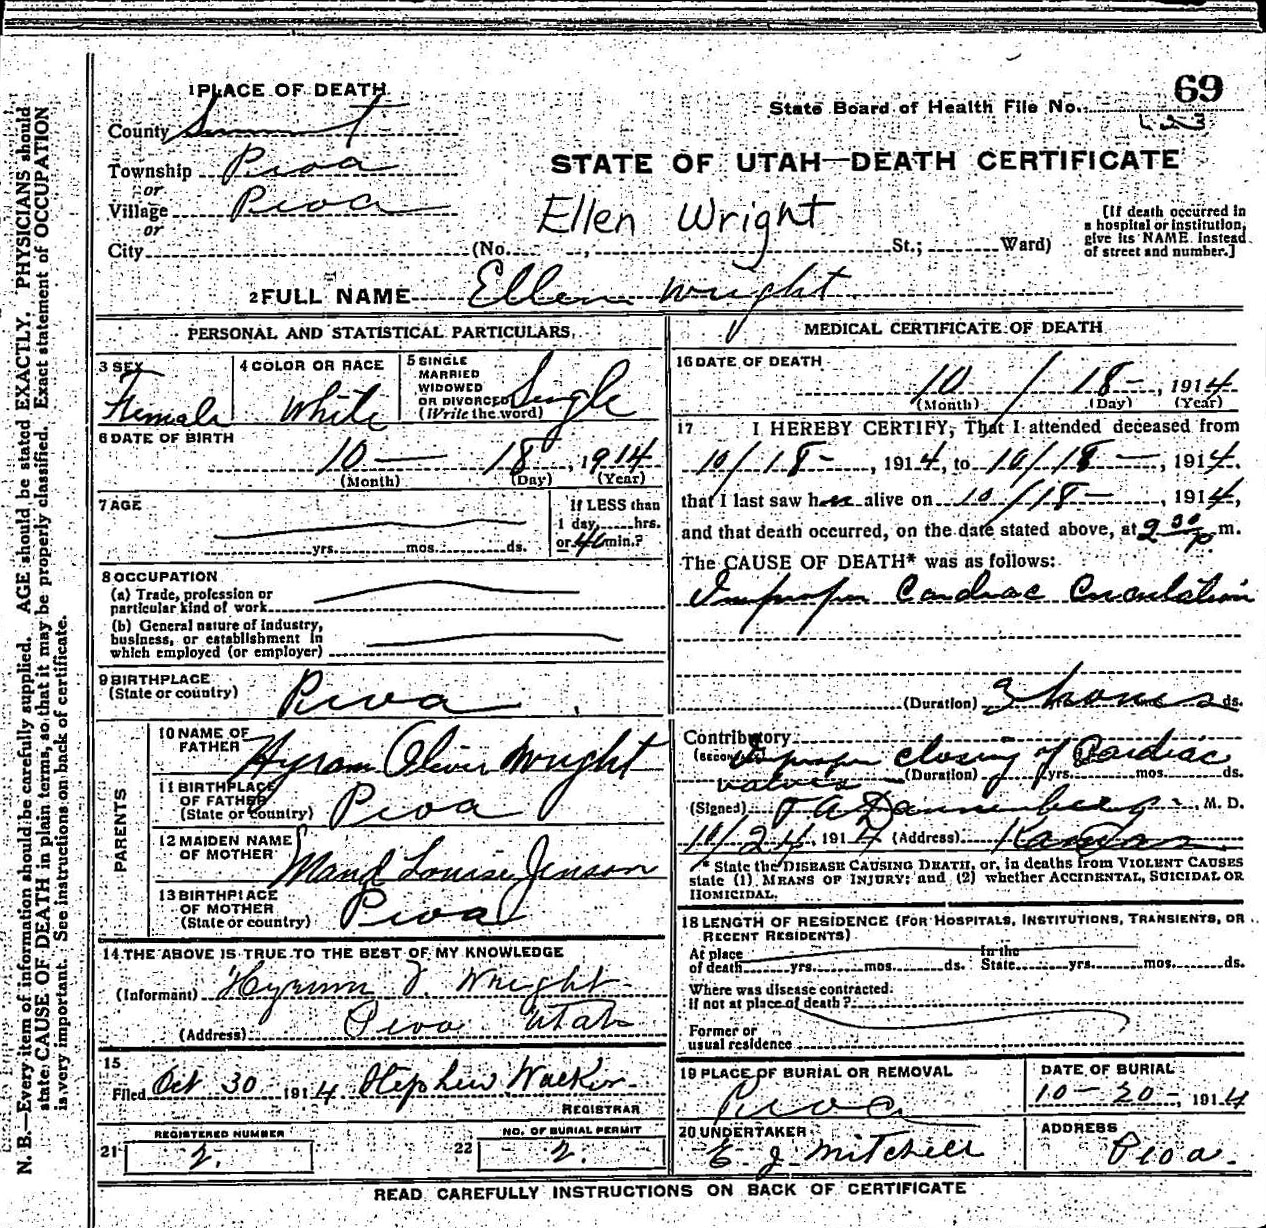 69
State Board of Health File No.
1 PLACE OF DEATH
County Summit
STATE OF UTAH—DEATH CERTIFICATE
Township Peoa
or
Village Peoa
or
City
Ellen Wright
(No. , St.; Ward)
[If death occurred in
a hospital or institution,
give its NAME instead
of street and number.]
2 FULL NAME Ellen Wright
PERSONAL AND STATISTICAL PARTICULARS
3 SEX
Female
4 COLOR OR RACE
White
5 SINGLE
MARRIED
WIDOWED
OR DIVORCED
(Write the word)
Single
6 DATE OF BIRTH
10 — 18 , 1914
(Month) (Day) (Year)
7 AGE
yrs. mos. ds.
If LESS than
1 day, hrs.
or 46 min.?
8 OCCUPATION
(a) Trade, profession or
particular kind of work
(b) General nature of industry,
business, or establishment in
which employed (or employer)
9 BIRTHPLACE
(State or country) Peoa
PARENTS
10 NAME OF
FATHER Hyram Oliver Wright
11 BIRTHPLACE
OF FATHER
(State or country) Peoa
12 MAIDEN NAME
OF MOTHER Maud Louise Jenson
13 BIRTHPLACE
OF MOTHER
(State or country) Peoa
14 THE ABOVE IS TRUE TO THE BEST OF MY KNOWLEDGE
(Informant) Wright
(Address) Peoa Utah
15
Filed Oct 30 1914 Stephen Walker
REGISTRAR
REGISTERED NUMBER
21 2.
NO. OF BURIAL PERMIT
22 2.
MEDICAL CERTIFICATE OF DEATH
16 DATE OF DEATH
10 / 18 — , 1914
(Month) (Day) (Year)
17 I HEREBY CERTIFY, That I attended deceased from
10/18 — , 1914, to 10/18 — , 1914.
that I last saw her alive on 10/18 — , 1914,
and that death occurred, on the date stated above, at 2 30 p m.
The CAUSE OF DEATH* was as follows:
Improper Cardiac Circulation
(Duration) 3 hours ds.
Contributory
Improper closing of Cardiac
valves (Duration) yrs. mos. ds.
(Signed) F A Dannenberg , M. D.
10/24, 1914 (Address) Kamas
* State the DISEASE CAUSING DEATH, or, in deaths from VIOLENT CAUSES
state (1) MEANS OF INJURY; and (2) whether ACCIDENTAL, SUICIDAL OR
HOMICIDAL.
18 LENGTH OF RESIDENCE (FOR HOSPITALS, INSTITUTIONS, TRANSIENTS, OR
RECENT RESIDENTS)
At place In the
of death yrs. mos. ds. State yrs. mos. ds.
Where was disease contracted
if not at place of death?
Former or
usual residence
19 PLACE OF BURIAL OR REMOVAL
Peoa
DATE OF BURIAL
10—20—, 1914
20 UNDERTAKER
E J Mitchell
ADDRESS
Peoa.
READ CAREFULLY INSTRUCTIONS ON BACK OF CERTIFICATE
N. B.—Every item of information should be carefully supplied. AGE should be stated EXACTLY. PHYSICIANS should
state CAUSE OF DEATH in plain terms, so that it may be properly classified. Exact statement of OCCUPATION
is very important. See instructions on back of certificate.